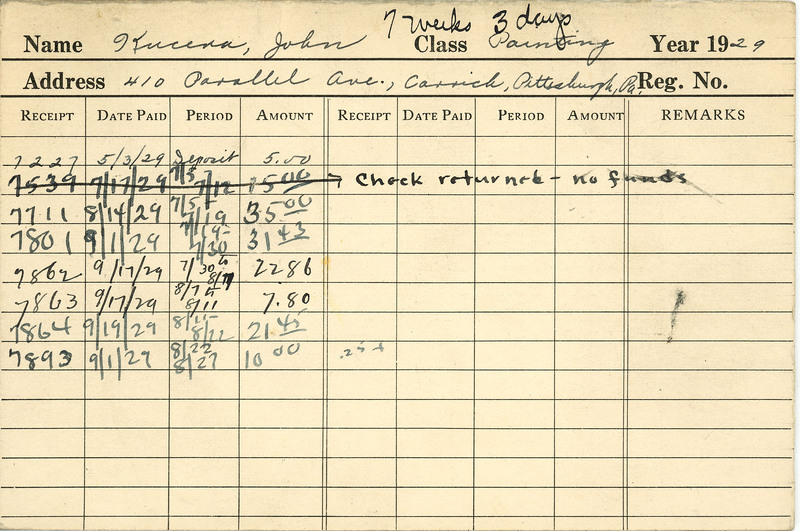 7 weeks 3 days
Name Kucera, John Class Painting Year 1929
Address 410 Parallel Ave., Carrick, Pittsburgh, Pa. Reg. No.
RECEIPT DATE PAID PERIOD AMOUNT RECEIPT DATE PAID PERIOD AMOUNT REMARKS
7227 5/3/29 Deposit 5.00
7539 7/17/29 7/5 7/12 15 00 → Check returned - no funds
7711 8/14/29 7/5 7/19 35 00
7801 9/1/29 7/19- 7/30 31 43
7862 9/17/29 7/30 to 8/7 22 86
7863 9/17/29 8/7 to 8/11 7.80
7864 9/19/29 8/15 8/22 21 45
7893 9/1/29 8/22 8/27 10 00 .25+